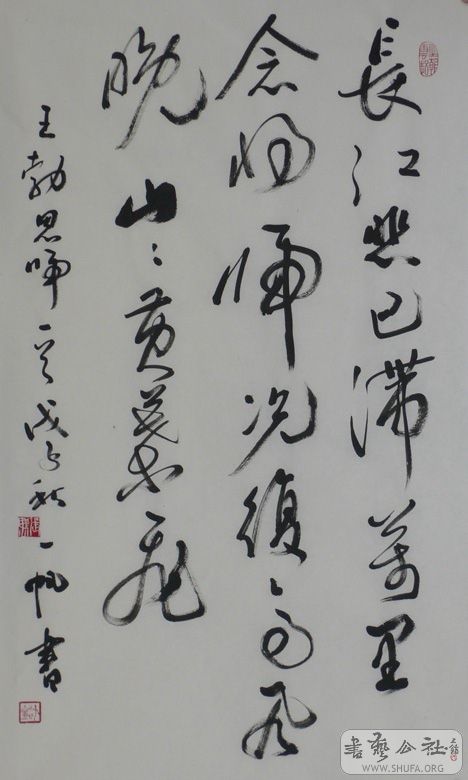 長江悲已滯萬里
念将歸况復高風
晚山〻黄葉飛
王勃思歸一首戊子秋一帆書
書藝公社
WWW.SHUFA.ORG